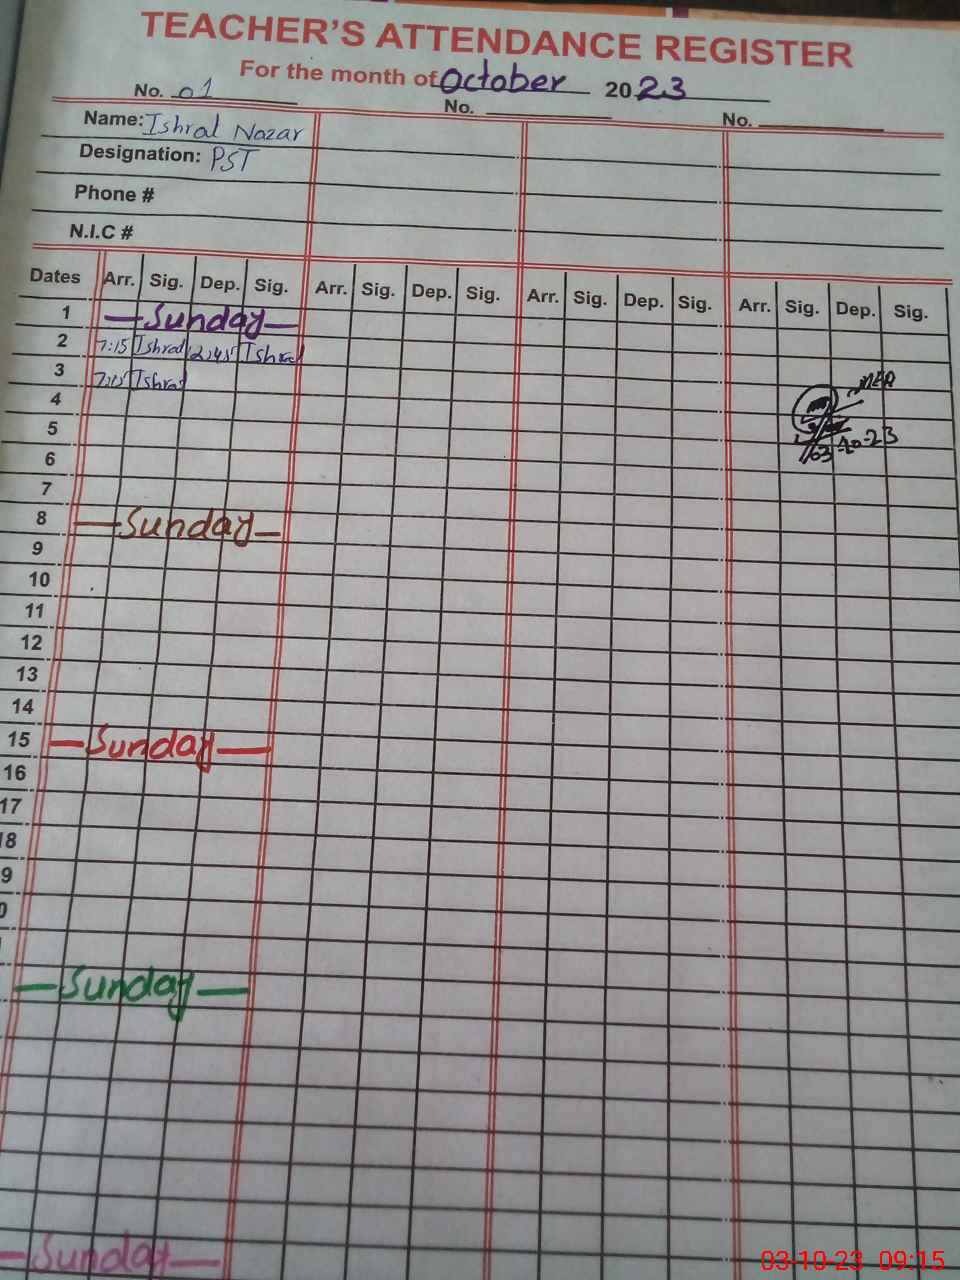 TEACHER'S ATTENDANCE REGISTER
For the month of October 2023
No. 01 No. No.
Name: Ishral Nazar
Designation: PST
Phone #
N.I.C #
Dates Arr. Sig. Dep. Sig. Arr. Sig. Dep. Sig. Arr. Sig. Dep. Sig. Arr. Sig. Dep. Sig.
1 Sunday
2 7:15 Ishral 2:45 Ishral
3 7:15 Ishral
4 MEA
5 03-10-23
6
7
8 Sunday
9
10
11
12
13
14
15 Sunday
16
17
18
9
0
Sunday
Sunday
03-10-23 09:15